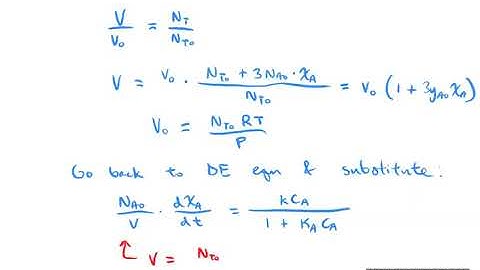 V/V₀ = N_T/N_T₀
V = V₀ · (N_T₀ + 3N_A₀ · X_A)/N_T₀ = V₀ (1 + 3y_A₀ X_A)
V₀ = N_T₀ RT/P
Go back to DE eqn & substitute:
N_A₀/V · dX_A/dt = kC_A/(1 + K_A C_A)
V = N_T₀